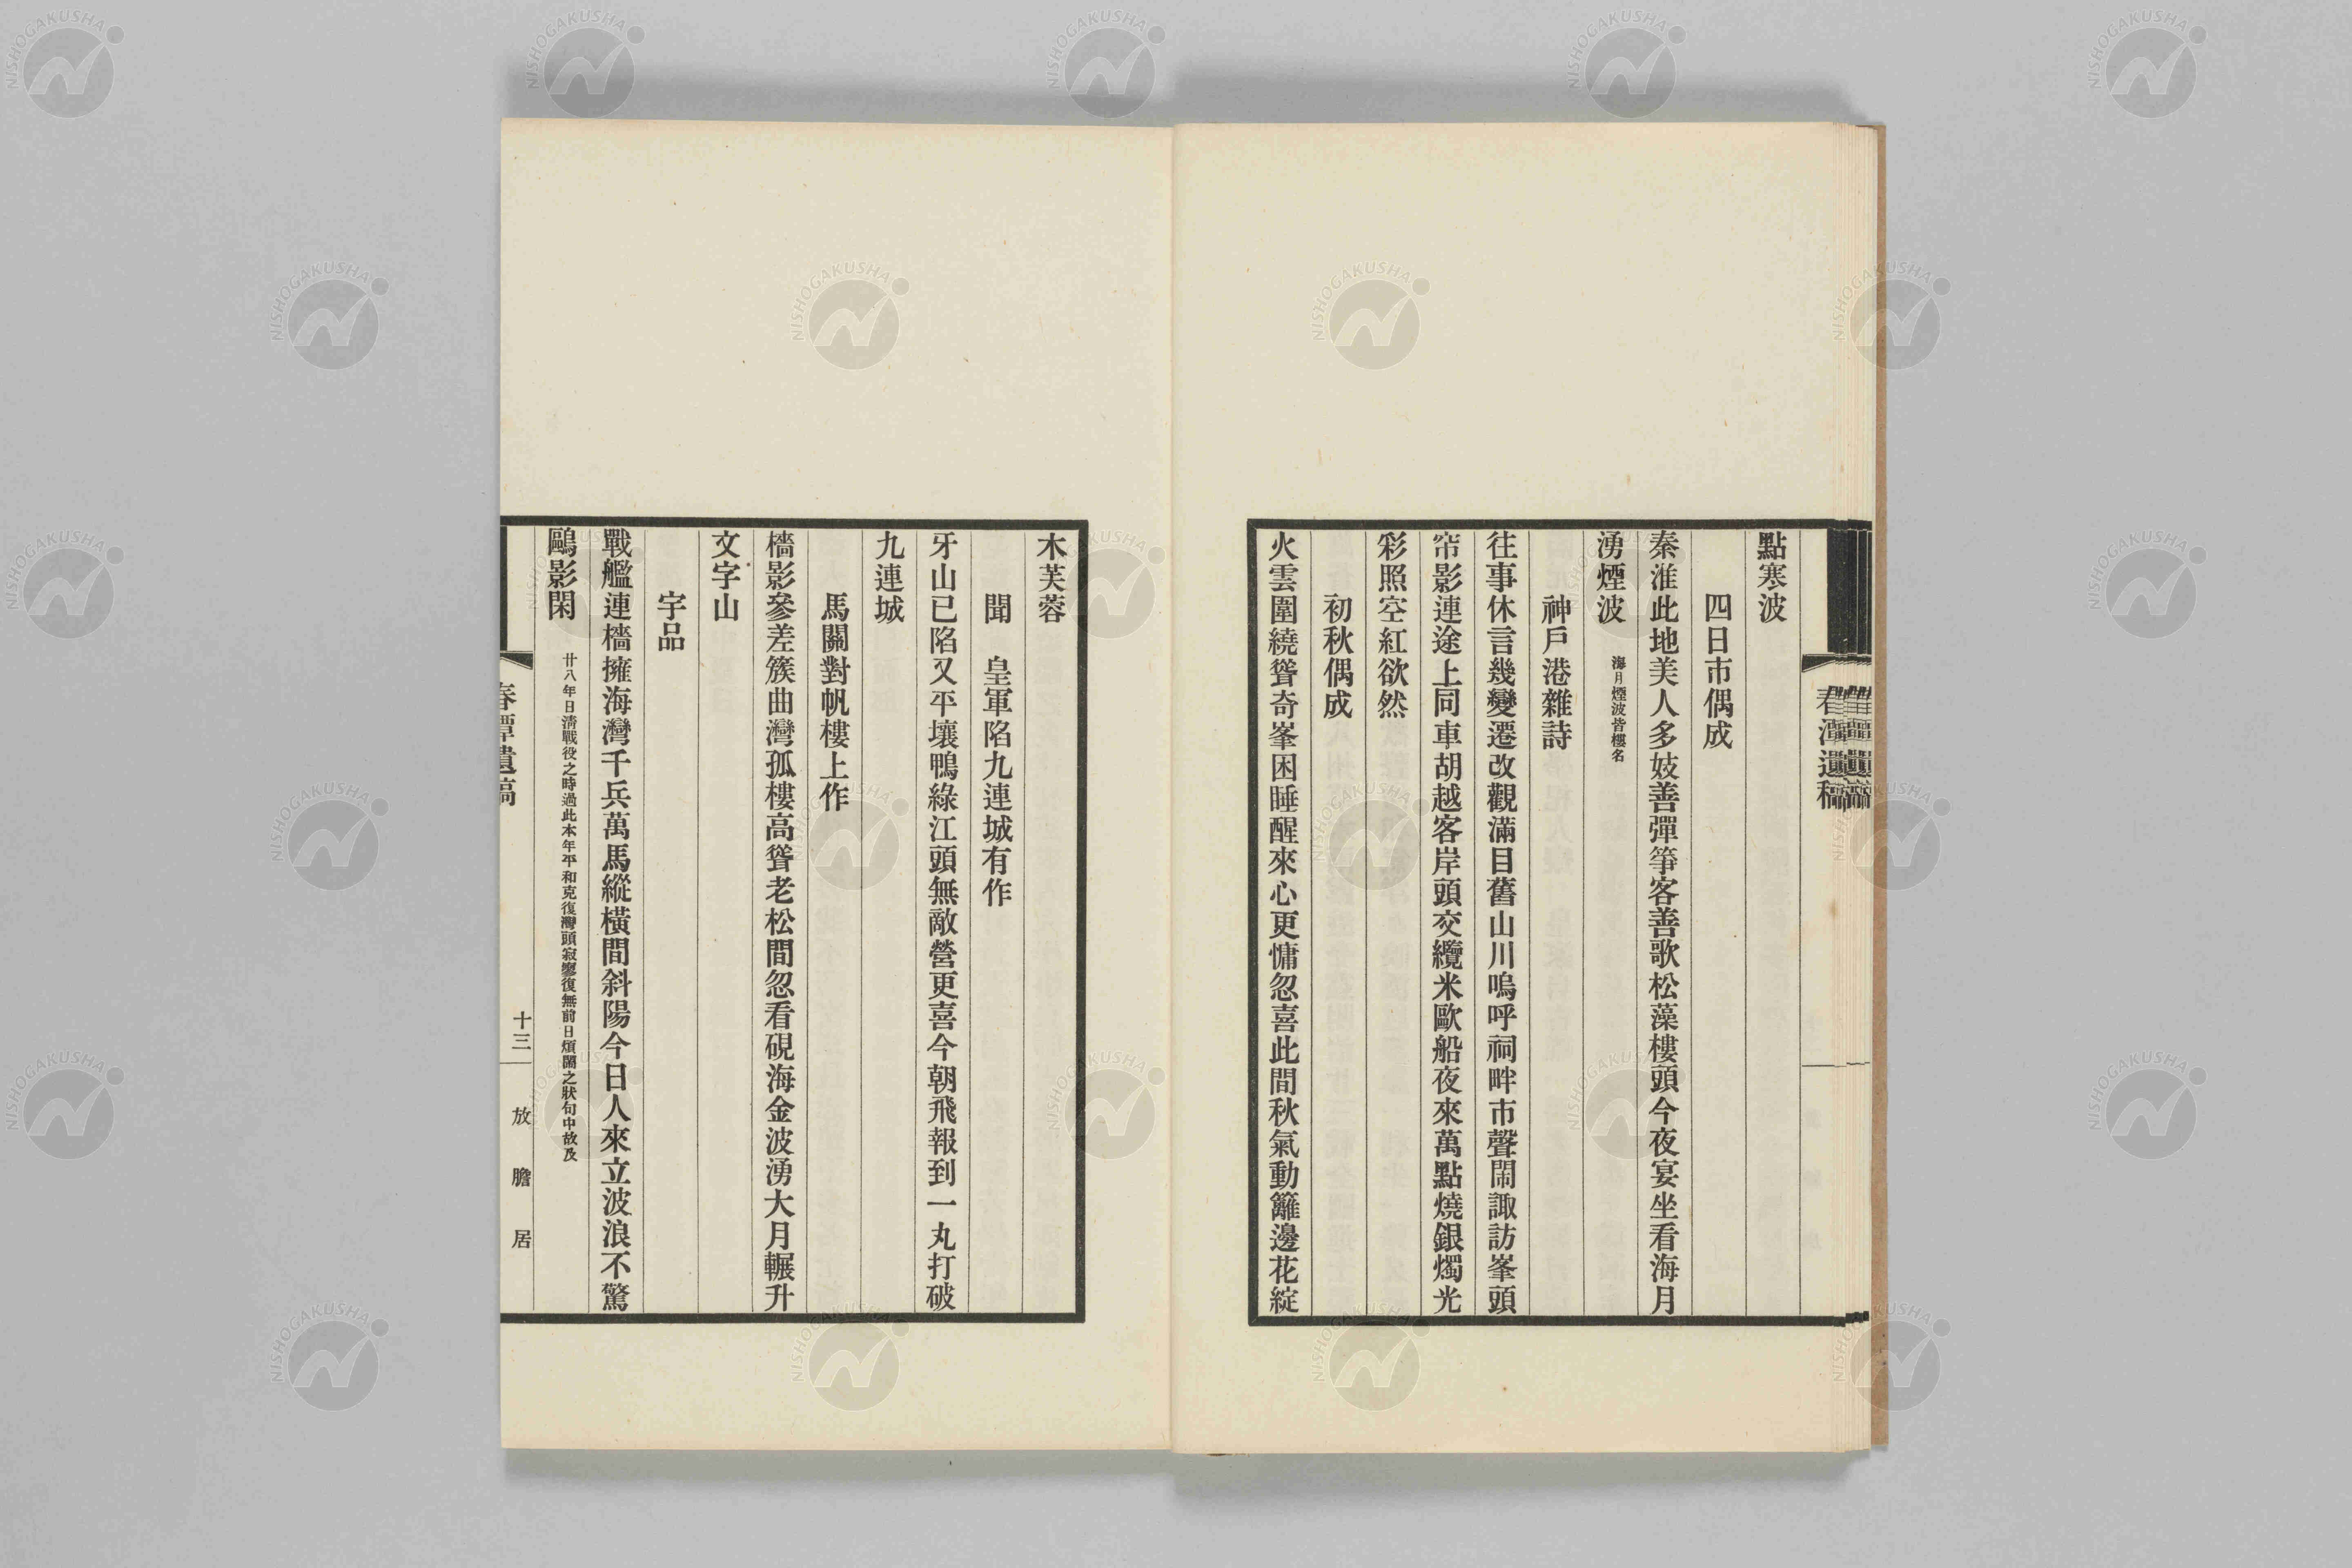 點寒波
四日市偶成
秦淮此地美人多妓善彈箏客善歌松藻樓頭今夜宴坐看海月
湧煙波 海月煙波皆樓名
神戶港雜詩
往事休言幾變遷改觀滿目舊山川嗚呼祠畔市聲鬧諏訪峯頭
帘影連途上同車胡越客岸頭交纜米歐船夜來萬點燒銀燭光
彩照空紅欲然
初秋偶成
火雲圍繞聳奇峯困睡醒來心更慵忽喜此間秋氣動籬邊花綻
春潭遺稿
木芙蓉
聞 皇軍陷九連城有作
牙山已陷又平壤鴨綠江頭無敵營更喜今朝飛報到一丸打破
九連城
馬關對帆樓上作
檣影參差簇曲灣孤樓高聳老松間忽看硯海金波湧大月輾升
文字山
宇品
戰艦連檣擁海灣千兵萬馬縱橫間斜陽今日人來立波浪不驚
鷗影閑 廿八年日清戰役之時過此本年平和克復灣頭寂寥復無前日煩鬧之狀句中故及
春潭遺稿 十三 放膽居
NISHOGAKUSHA